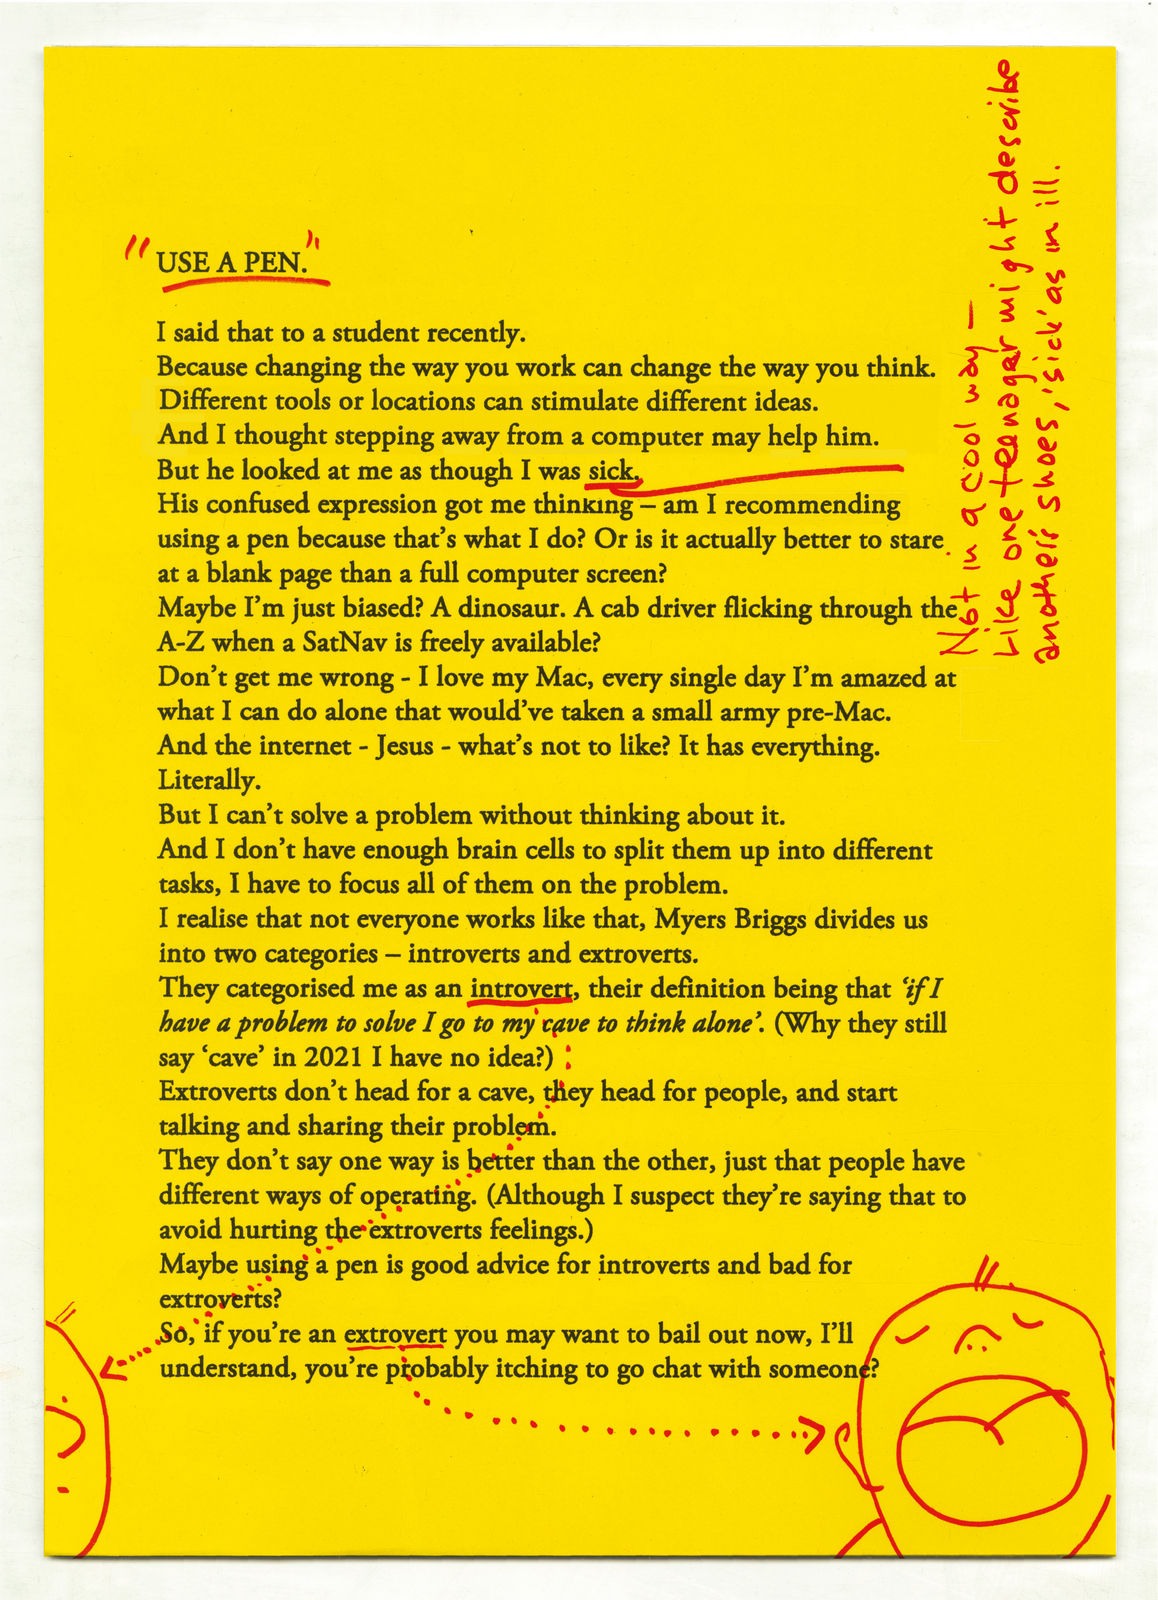 "USE A PEN."
I said that to a student recently.
Because changing the way you work can change the way you think.
Different tools or locations can stimulate different ideas.
And I thought stepping away from a computer may help him.
But he looked at me as though I was sick.
His confused expression got me thinking – am I recommending
using a pen because that's what I do? Or is it actually better to stare
at a blank page than a full computer screen?
Maybe I'm just biased? A dinosaur. A cab driver flicking through the
A-Z when a SatNav is freely available?
Don't get me wrong - I love my Mac, every single day I'm amazed at
what I can do alone that would've taken a small army pre-Mac.
And the internet - Jesus - what's not to like? It has everything.
Literally.
But I can't solve a problem without thinking about it.
And I don't have enough brain cells to split them up into different
tasks, I have to focus all of them on the problem.
I realise that not everyone works like that, Myers Briggs divides us
into two categories – introverts and extroverts.
They categorised me as an introvert, their definition being that 'if I
have a problem to solve I go to my cave to think alone'. (Why they still
say 'cave' in 2021 I have no idea?)
Extroverts don't head for a cave, they head for people, and start
talking and sharing their problem.
They don't say one way is better than the other, just that people have
different ways of operating. (Although I suspect they're saying that to
avoid hurting the extroverts feelings.)
Maybe using a pen is good advice for introverts and bad for
extroverts?
So, if you're an extrovert you may want to bail out now, I'll
understand, you're probably itching to go chat with someone?
Not in a cool way –
Like one teenager might describe
another's shoes, 'sick' as in ill.